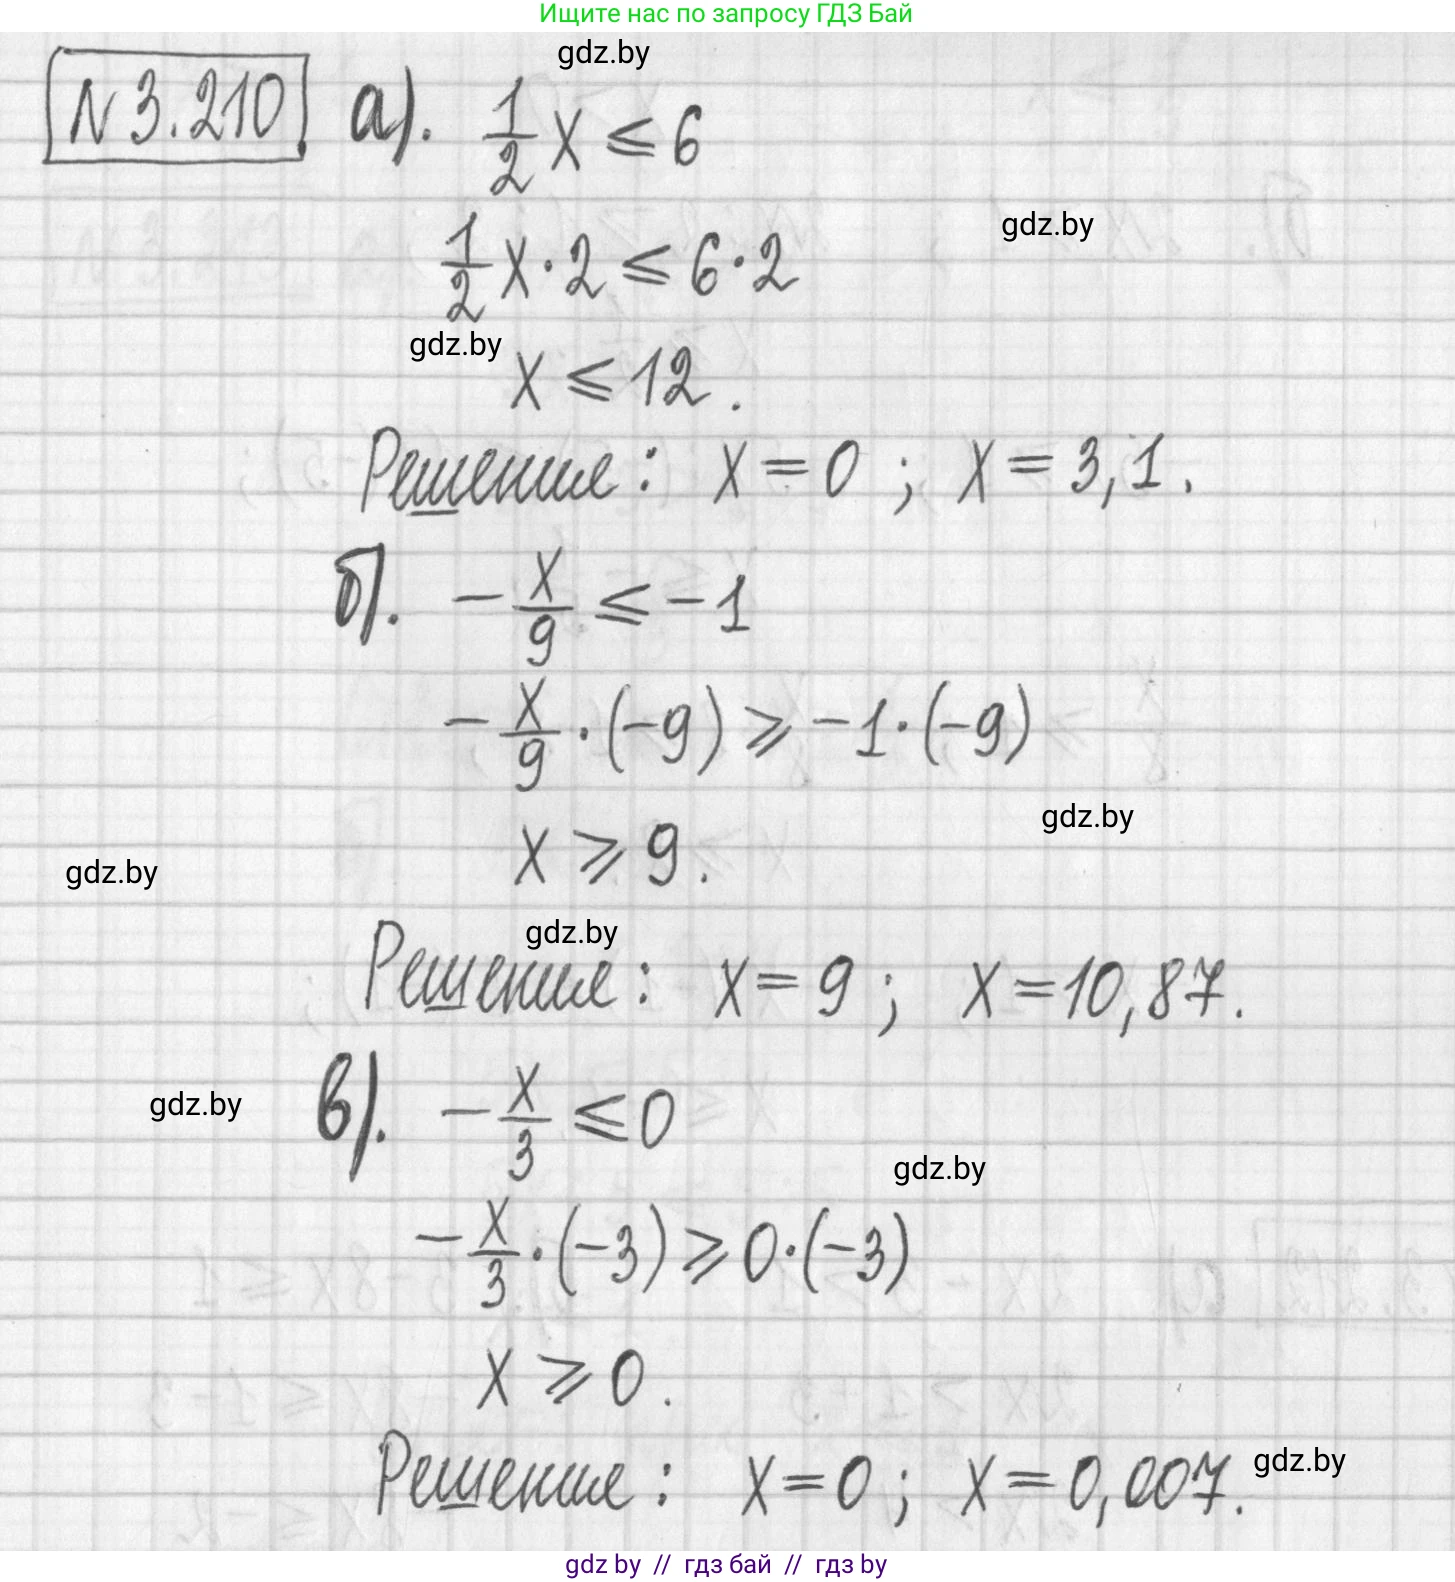 Ищите нас по запросу ГДЗ Бай
gdz.by
№ 3.210 а). 1/2 x ≤ 6
gdz.by
1/2 x · 2 ≤ 6 · 2
gdz.by
x ≤ 12.
Решения: x = 0 ; x = 3,1.
б). - x/9 ≤ -1
- x/9 · (-9) ≥ -1 · (-9)
gdz.by
x ≥ 9.
gdz.by
gdz.by
Решения: x = 9 ; x = 10,87.
в). - x/3 ≤ 0
gdz.by
gdz.by
- x/3 · (-3) ≥ 0 · (-3)
x ≥ 0.
Решения: x = 0 ; x = 0,007.
gdz.by
gdz by // гдз бай // гдз by